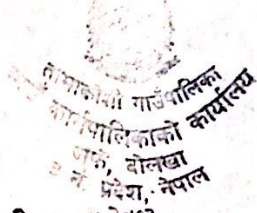 तामाकोशी गाउँपालिका
कार्यपालिकाको कार्यालय
जफे, दोलखा
३ नं. प्रदेश, नेपाल